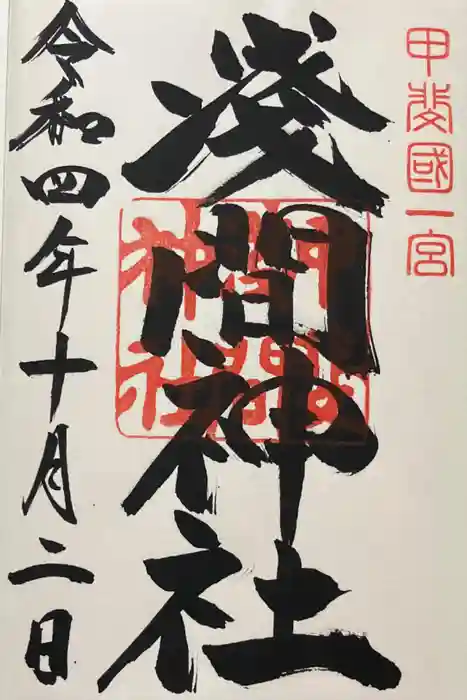 甲斐國一宮
淺間神社
淺間
神社
令和四年十月二日